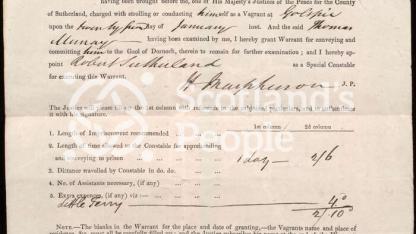 having been brought before, one of His Majesty's Justices of the Peace for the County
of Sutherland, charged with strolling or conducting himself as a Vagrant at Golspie
upon the twenty fifth day of January inst. And the said Thomas
Murray having been examined by me, I hereby grant Warrant for conveying and
committing him to the Gaol of Dornoch, therein to remain for further examination; and I hereby ap-
point Robert Sutherland as a Special Constable
for executing this Warrant.
H Macpherson J. P.
Scotland's
People
The Justice will please fill up the 1st column with reference to the subjoined
it with his signature.
1st column / 2d column.
1. Length of Imprisonment recommended
2. Length of time allowed to the Constable for apprehending
and conveying to prison 1 day — 2/6
3. Distance travelled by Constable in do. do.
4. No. of Assistants necessary, (if any)
5. Extra expences, (if any) viz
Little Ferry 4
2/10
NOTE.—The Blanks in the Warrant for the place and date of granting,—the Vagrants name and place of